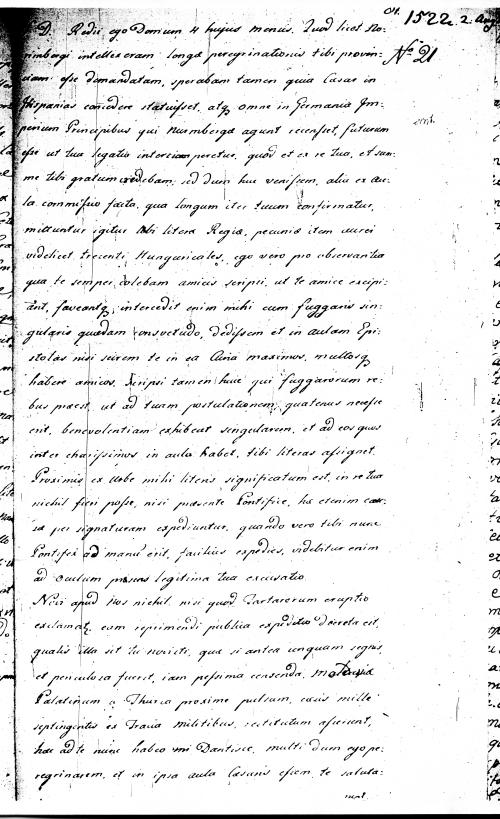 1522. 2. Aug
№ 21
D. Redii ego Domum 4 hujus mensis. Quod licet No-
rimbergi intellexeram, longæ peregrinationis tibi provin-
ciam esse demandatam, sperabam tamen quia Cæsar in
Hispanias concedere statuisset, atq omne in Germania Im-
perium Principibus qui Nurmbergæ agunt recenset, futurum
esse ut tua legatio interrumperetur, quod et ex re tua, et sum-
me tibi gratum credebam, sed dum huc venissem, alia ex au-
la commissio facta, qua longum iter tuum confirmatur,
mittuntur igitur tibi literæ Regiæ, pecuniæ item aurei
videlicet trecenti Hungaricales, ego vero pro observantia
qua te semper colebam amicis scripsi, ut te amice excipi-
ant, faveantq, intercedit enim mihi cum fuggaris sin-
gularis quædam consvetudo, dedissem et in aulam Epi-
stolas nisi scirem te in ea Curia maximos, multosq
habere amicos. Scripsi tamen huic qui fuggarorum re-
bus præest, ut ad tuam postulationem, quatenus necesse
erit, benevolentiam exhibeat singularem, et ad eos quos
inter charissimos in aula habet, tibi literas assignet.
Proximis ex Urbe mihi literis significatum est, in re tua
nichil fieri posse, nisi præsente Pontifice, hæ etenim cau-
sæ per signaturam expediuntur, quando vero tibi nunc
Pontifex ad manus erit, facilius expedies, videbitur enim
ad oculum legitima tua excusatio
Novi apud Nos nichil, nisi quod Tartarorum eruptio
exclamatq, eam reprimendi publica expeditio decreta est,
qualis illa sit tu noristi, quæ si antea unquam segnis,
et periculosa fuerit, iam pessima censenda,
Palatinum a Thurca proxime pulsum, cæsis mille
septingentis ex Traia militibus, restitutum asserunt,
hæc ad te nunc habeo mi Dantisce, multi dum ego pe-
regrinarem, et in ipsa aula Cæsaris essem, te saluta-